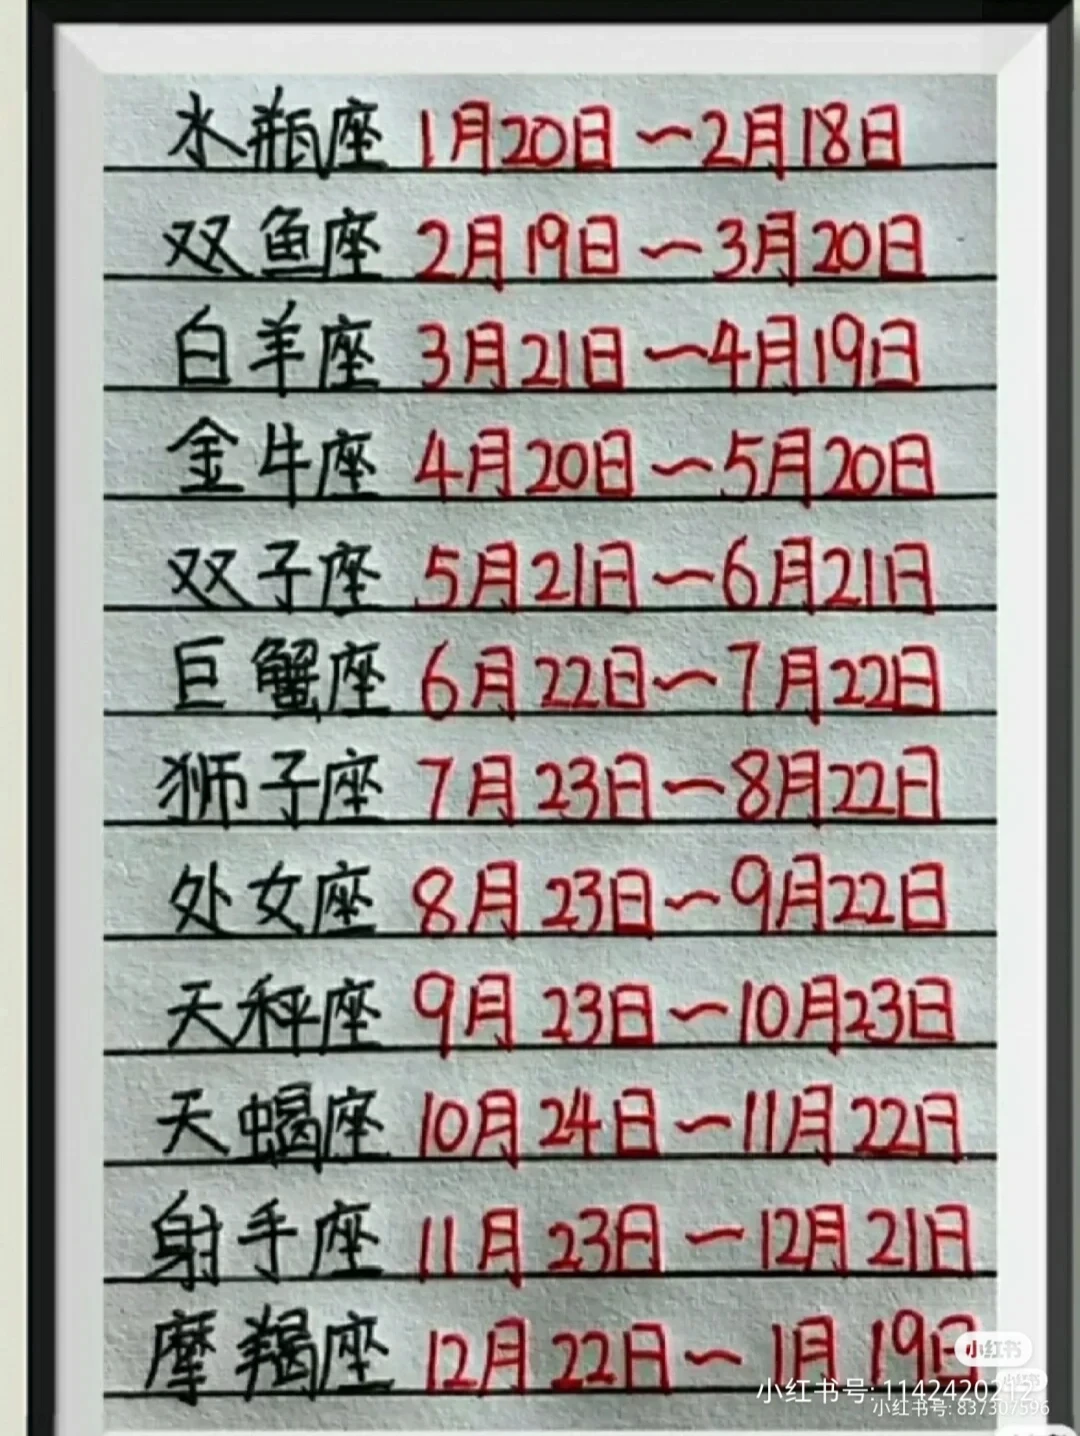 水瓶座 1月20日~2月18日
双鱼座 2月19日~3月20日
白羊座 3月21日~4月19日
金牛座 4月20日~5月20日
双子座 5月21日~6月21日
巨蟹座 6月22日~7月22日
狮子座 7月23日~8月22日
处女座 8月23日~9月22日
天秤座 9月23日~10月23日
天蝎座 10月24日~11月22日
射手座 11月23日~12月21日
摩羯座 12月22日~1月19日
小红书
小红书号: 1142420212
小红书号: 837307596